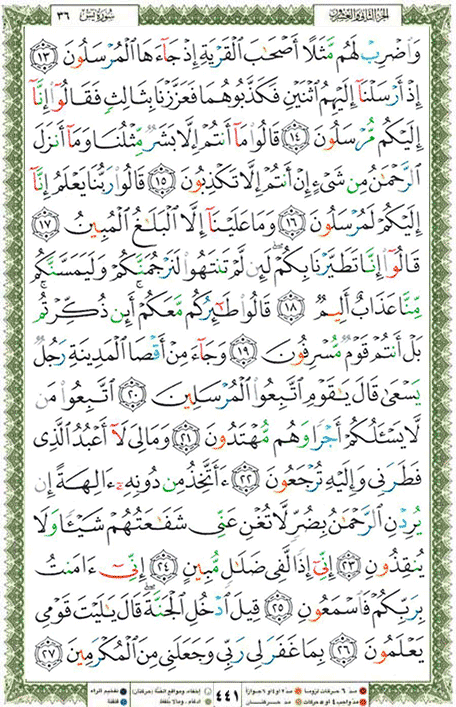 الجزء الثاني والعشرون
سورة يس ٣٦
وَٱضْرِبْ لَهُم مَّثَلًا أَصْحَـٰبَ ٱلْقَرْيَةِ إِذْ جَآءَهَا ٱلْمُرْسَلُونَ ١٣
إِذْ أَرْسَلْنَآ إِلَيْهِمُ ٱثْنَيْنِ فَكَذَّبُوهُمَا فَعَزَّزْنَا بِثَالِثٍ فَقَالُوٓا۟ إِنَّآ
إِلَيْكُم مُّرْسَلُونَ ١٤ قَالُوا۟ مَآ أَنتُمْ إِلَّا بَشَرٌ مِّثْلُنَا وَمَآ أَنزَلَ
ٱلرَّحْمَـٰنُ مِن شَىْءٍ إِنْ أَنتُمْ إِلَّا تَكْذِبُونَ ١٥ قَالُوا۟ رَبُّنَا يَعْلَمُ إِنَّآ
إِلَيْكُمْ لَمُرْسَلُونَ ١٦ وَمَا عَلَيْنَآ إِلَّا ٱلْبَلَـٰغُ ٱلْمُبِينُ ١٧
قَالُوٓا۟ إِنَّا تَطَيَّرْنَا بِكُمْ ۖ لَئِن لَّمْ تَنتَهُوا۟ لَنَرْجُمَنَّكُمْ وَلَيَمَسَّنَّكُم
مِّنَّا عَذَابٌ أَلِيمٌ ١٨ قَالُوا۟ طَـٰٓئِرُكُم مَّعَكُمْ ۚ أَئِن ذُكِّرْتُم ۚ
بَلْ أَنتُمْ قَوْمٌ مُّسْرِفُونَ ١٩ وَجَآءَ مِنْ أَقْصَا ٱلْمَدِينَةِ رَجُلٌ
يَسْعَىٰ قَالَ يَـٰقَوْمِ ٱتَّبِعُوا۟ ٱلْمُرْسَلِينَ ٢٠ ٱتَّبِعُوا۟ مَن
لَّا يَسْـَٔلُكُمْ أَجْرًا وَهُم مُّهْتَدُونَ ٢١ وَمَا لِىَ لَآ أَعْبُدُ ٱلَّذِى
فَطَرَنِى وَإِلَيْهِ تُرْجَعُونَ ٢٢ ءَأَتَّخِذُ مِن دُونِهِۦٓ ءَالِهَةً إِن
يُرِدْنِ ٱلرَّحْمَـٰنُ بِضُرٍّ لَّا تُغْنِ عَنِّى شَفَـٰعَتُهُمْ شَيْـًٔا وَلَا
يُنقِذُونِ ٢٣ إِنِّىٓ إِذًا لَّفِى ضَلَـٰلٍ مُّبِينٍ ٢٤ إِنِّىٓ ءَامَنتُ
بِرَبِّكُمْ فَٱسْمَعُونِ ٢٥ قِيلَ ٱدْخُلِ ٱلْجَنَّةَ ۖ قَالَ يَـٰلَيْتَ قَوْمِى
يَعْلَمُونَ ٢٦ بِمَا غَفَرَ لِى رَبِّى وَجَعَلَنِى مِنَ ٱلْمُكْرَمِينَ ٢٧
٤٤١